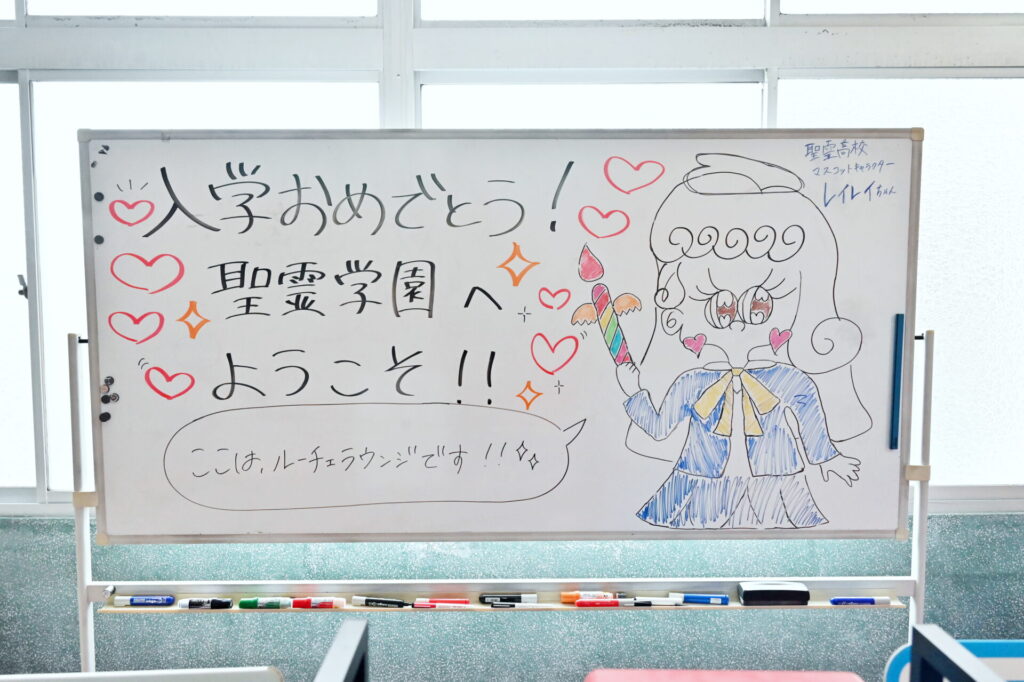 入学おめでとう!
聖霊学園へ
ようこそ!!
ここは、ルーチェラウンジです!!
聖霊高校
マスコットキャラクター
レイレイちゃん